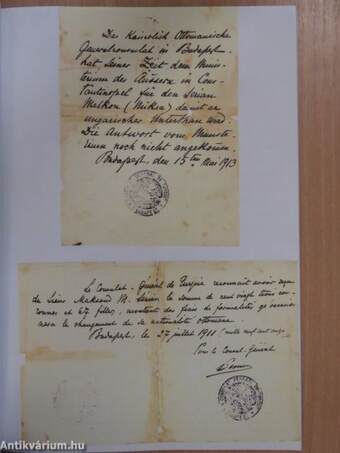 Das Kaiserlich Ottomanische
Generalconsulat in Budapest
hat seiner Zeit dem Minis-
terium des Äussern in Con-
stantinopel für den Serian
Melkon (Miken) damit er
ungarischer Unterthan werd.
Die Antwort vom Ministe-
rium noch nicht angekommen.
Budapest, den 15ten Mai 1913
Le Consulat-Général de Turquie reconnait avoir reçu
du Sieur M. Serian la somme de cent vingt trois cou-
ronnes et 67 filler, montant des frais de formalités
le changement de sa nationalité ottomane.
Budapest, le 27 juillet 1911 (mille neuf cent onze)
Pour le Consul-Général
Antikvárium.hu